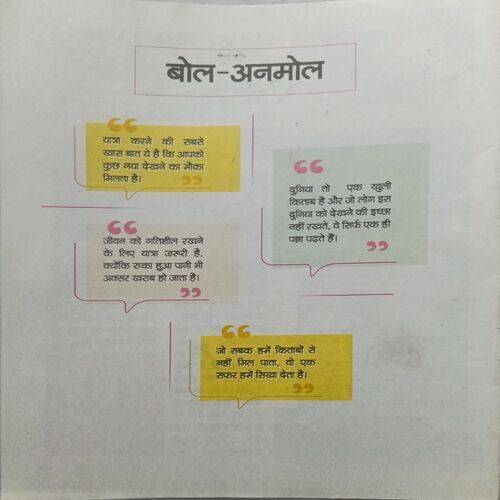 बोल-अनमोल
यात्रा करने की सबसे
खास बात ये है कि आपको
कुछ नया देखने का मौका
मिलता है।
दुनिया तो एक खुली
किताब है और जो लोग इस
दुनिया को देखने की इच्छा
नहीं रखते, वे सिर्फ एक ही
पन्ना पढ़ते हैं।
जीवन को गतिशील रखने
के लिए यात्रा जरूरी है,
क्योंकि रुका हुआ पानी भी
अक्सर खराब हो जाता है।
जो सबक हमें किताबों से
नहीं मिल पाता, वो एक
सफर हमें सिखा देता है।